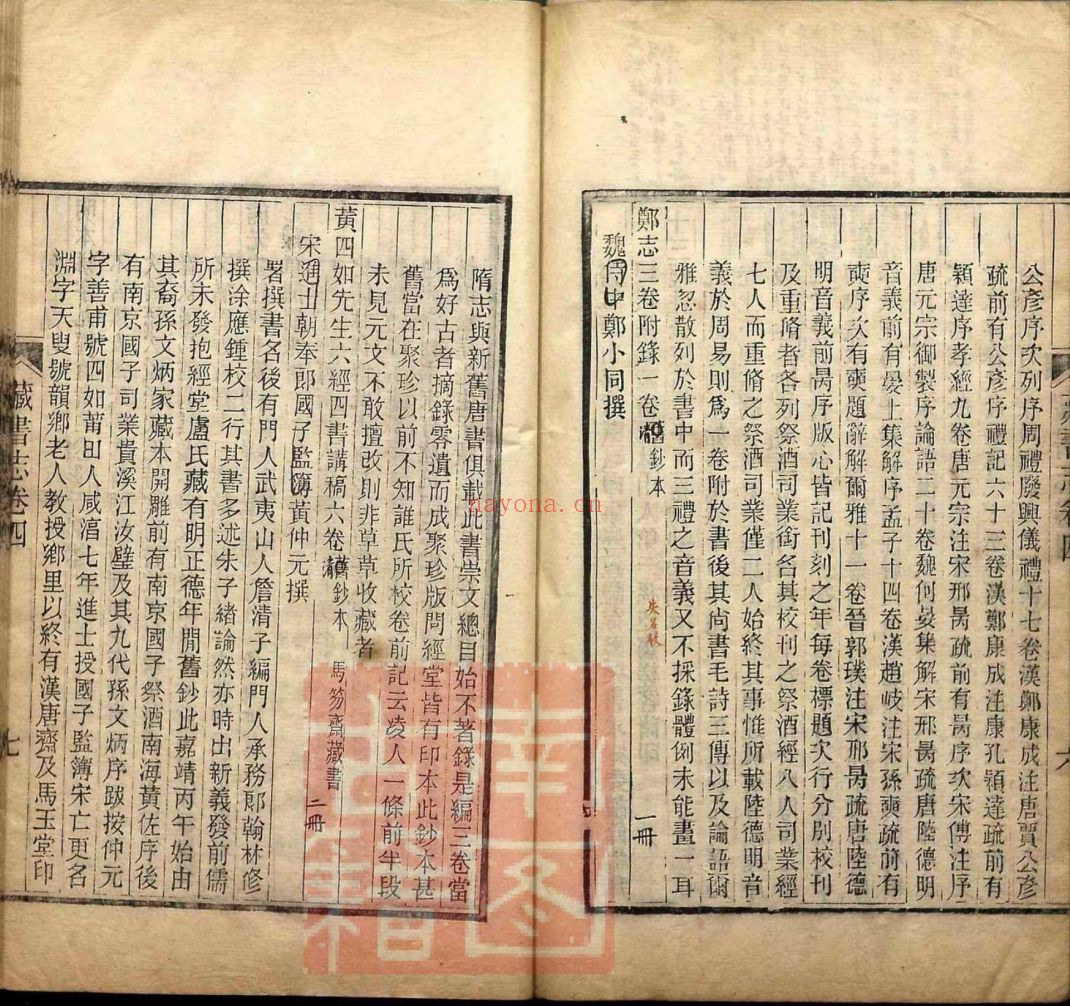 公彥序次列序周禮廢興儀禮十七卷漢鄭康成注唐賈公彥
疏前有公彥序禮記六十三卷漢鄭康成注唐孔穎達疏前有
穎達序孝經九卷唐元宗注宋邢昺疏前有昺序次宋傅注序
唐元宗御製序論語二十卷魏何晏集解宋邢昺疏唐陸德明
音義前有晏上集解序孟子十四卷漢趙岐注宋孫奭疏前有
奭序次有奭題辭解爾雅十一卷晉郭璞注宋邢昺疏唐陸德
明音義前昺序版心皆記刊刻之年每卷標題次行分別校刊
及重脩者各列祭酒司業銜名其校刊之祭酒經八人司業經
七人而重脩之祭酒司業僅二人始終其事惟所載陸德明音
義於周易則爲一卷附於書後其尚書毛詩三傳以及論語爾
雅忽散列於書中而三禮之音義又不採錄體例未能畫一耳
鄭志三卷附錄一卷 舊鈔本 一冊
魏侍中鄭小同撰
隋志與新舊唐書俱載此書崇文總目始不著錄是編三卷當
爲好古者摘錄零遺而成聚珍版問經堂皆有印本此鈔本甚
舊當在聚珍以前不知誰氏所校卷前記云凌人一條前半段
未見元文不敢擅改則非草草收藏者
黃四如先生六經四書講稿六卷 舊鈔本 馬笏齋藏書 二冊
宋通士朝奉郎國子監簿黃仲元撰
署撰書名後有門人武夷山人詹清子編門人承務郎翰林修
撰涂應鍾校二行其書多述朱子緒論然亦時出新義發前儒
所未發抱經堂盧氏藏有明正德年閒舊鈔此嘉靖丙午始由
其裔孫文炳家藏本開雕前有南京國子祭酒南海黃佐序後
有南京國子司業貴溪江汝璧及其九代孫文炳序跋按仲元
字善甫號四如莆田人咸淳七年進士授國子監簿宋亡更名
淵字天叟號韻鄉老人教授鄉里以終有漢唐齋及馬玉堂印
藏書志卷四
七